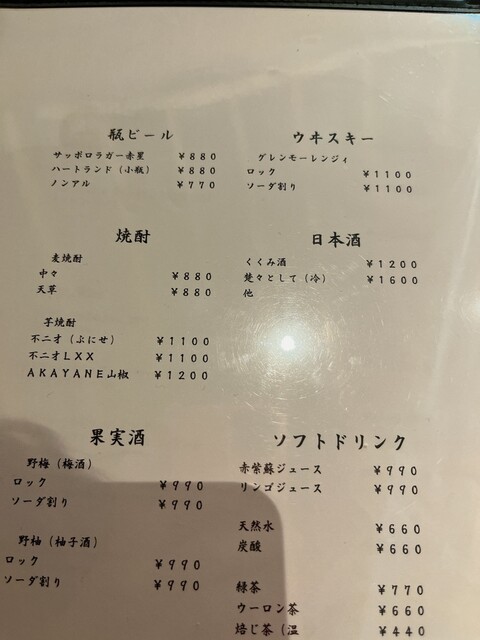 瓶ビール
サッポロラガー赤星 ¥880
ハートランド（小瓶） ¥880
ノンアル ¥770
ウヰスキー
グレンモーレンジィ
ロック ¥1100
ソーダ割り ¥1100
焼酎
麦焼酎
中々 ¥880
天草 ¥880
芋焼酎
不二才（ぶにせ） ¥1100
不二才LXX ¥1100
AKAYANE山椒 ¥1200
日本酒
くくみ酒 ¥1200
楚々として（冷） ¥1600
他
果実酒
野梅（梅酒）
ロック ¥990
ソーダ割り ¥990
野柚（柚子酒）
ロック ¥990
ソーダ割り ¥990
ソフトドリンク
赤紫蘇ジュース ¥990
リンゴジュース ¥990
天然水 ¥660
炭酸 ¥660
緑茶 ¥770
ウーロン茶 ¥660
焙じ茶（温 ¥440